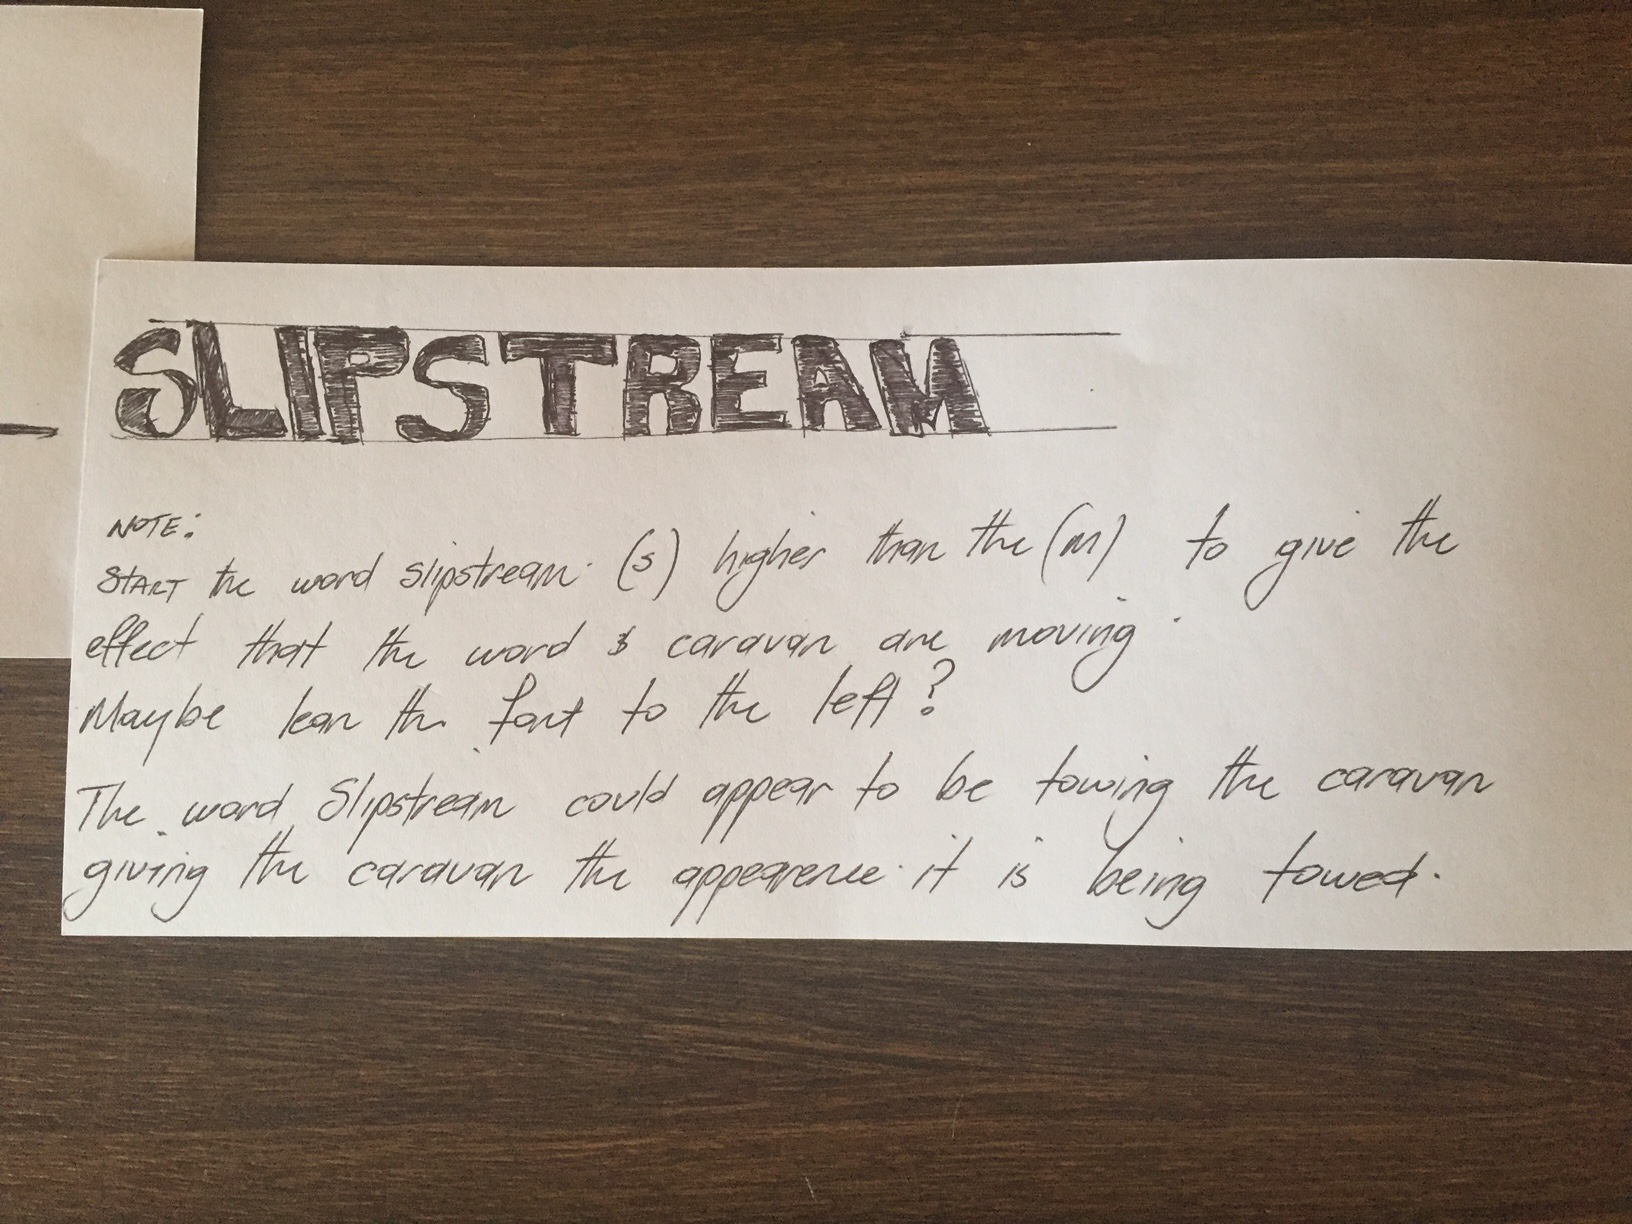 SLIPSTREAM
NOTE:
START the word slipstream (s) higher than the (m) to give the
effect that the word & caravan are moving.
Maybe lean the font to the left?
The word Slipstream could appear to be towing the caravan
giving the caravan the appearence it is being towed.